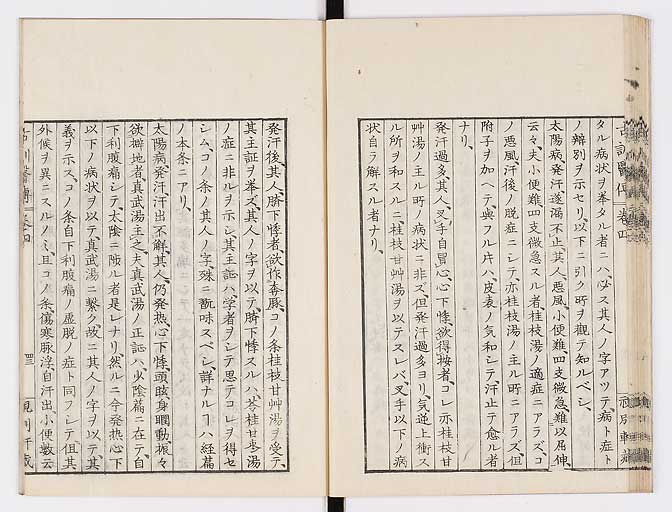 タル病状ヲ挙タル者ニハ、必ス其人ノ字アツテ、病ト症ト
ノ辨別ヲ示セリ、以下ニ引ク所ヲ観テ知ルベシ、
太陽病、発汗、遂漏不止、其人、悪風、小便難、四支微急、難以屈伸、
云々、夫小便難四支微急スル者、桂枝湯ノ適症ニアラズ、コ
ノ悪風汗後ノ脱症ニシテ、亦桂枝湯ノ主ル所ニアラズ、但
附子ヲ加ヘテ、與フル片ハ、皮表ノ気和シテ、汗止テ愈ル者
ナリ、
発汗過多、其人、叉手自冒心、心下悸、欲得按者、コレ亦桂枝甘
艸湯ノ主ル所ノ病状ニ非ズ、但発汗過多ヨリ、気逆上衝ス
ル所ヲ和スルニ、桂枝甘艸湯ヲ以テスレバ、叉手以下ノ病
状自ラ解スル者ナリ、
発汗後、其人、臍下悸者、欲作奔豚、コノ条桂枝甘艸湯ヲ受テ、
其主証ヲ挙ズ、其人ノ字ヲ以テ、臍下悸スルハ、苓桂甘棗湯
ノ症ニ非ルヲ示シ、其主証ハ、学者ヲシテ思テコレヲ得セ
シム、コノ条ノ其人ノ字、殊ニ翫味スベシ、詳ナルヿハ経篇
ノ本条ニアリ、
太陽病、発汗、汗出不解、其人、仍発熱、心下悸、頭眩、身瞤動、振々
欲擗地者、真武湯主之、夫真武湯ノ正証ハ、少陰篇ニ在テ、自
下利腹痛シテ、太陰ニ陥ル者是レナリ、然ルニ今発熱心下
以下ノ病状ヲ以テ、真武湯ニ繋ク、故ニ其人ノ字ヲ以テ、其
義ヲ示ス、コノ条自下利腹痛ノ虚脱ノ症ト同フシテ、但其
外候ヲ異ニスルノミ、且コノ条傷寒脉浮自汗出小便数云